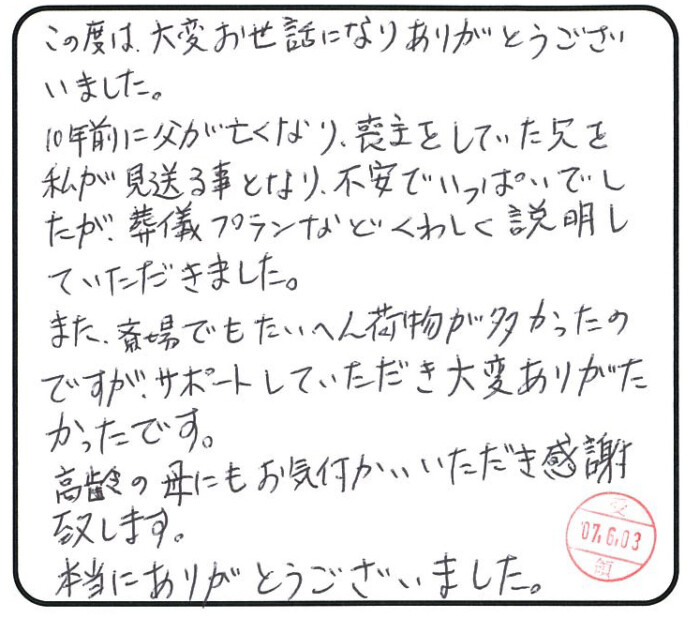 この度は、大変お世話になりありがとうござい
いました。
10年前に父が亡くなり、喪主をしていた兄を
私が見送る事となり、不安でいっぱいでし
たが、葬儀プランなどくわしく説明し
ていただきました。
また、斎場でもたいへん荷物が多かったの
ですが、サポートしていただき大変ありがた
かったです。
高齢の母にもお気付かいいただき感謝
致します。
本当にありがとうございました。
受
'07.6.03
領